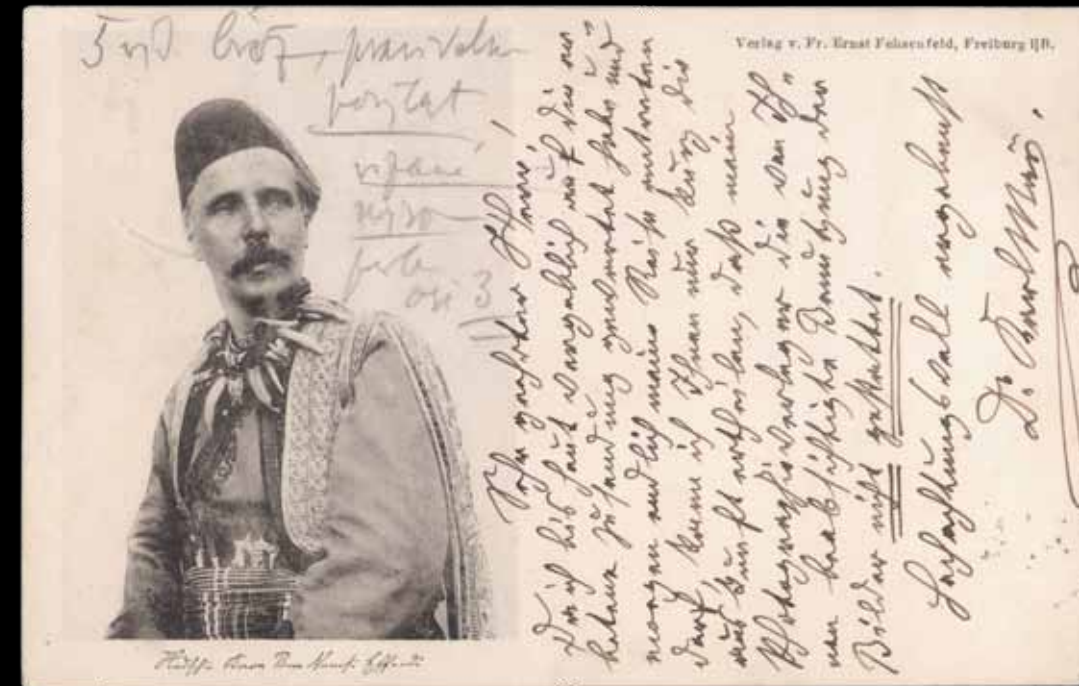 Verlag v. Fr. Ernst Fehsenfeld, Freiburg i/B.
Sehr geehrter Herr!
Da ich bis heut vergeblich auf die er-
betene Zusendung gewartet habe und
morgen endlich meine Reise antreten
darf, kann ich Ihnen nur kurz die
Auskunft ertheilen, daß mein
Photographieverleger die von Ih-
nen beabsichtigte Benutzung der
Bilder nicht gestattet.
Hochachtungsvoll ergebenst
Dr. Karl May.
Hadschi Kara Ben Nemsi Effendi